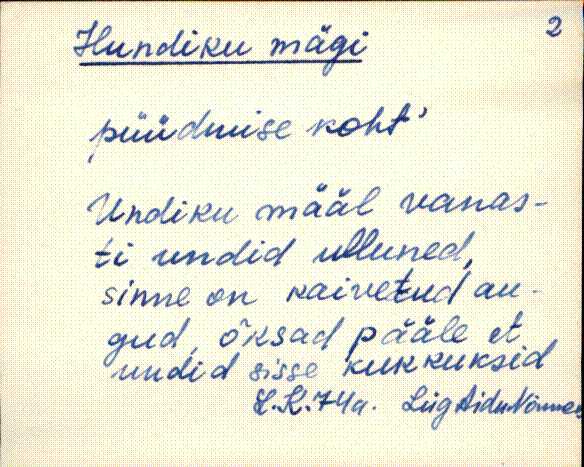 2
Hundiku mägi
püüdmise koht'
Undiku määl vanas-
ti undid ulluned,
sinne on kaivetud au-
gud, õksad pääle et
undid sisse kukkuksid
L.K. 74a. Liig Aidu Nõmme